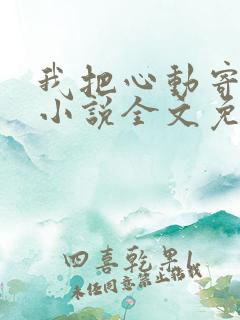 我把心動寄
小說全文免
四喜乾果l
未经同意禁止搭我